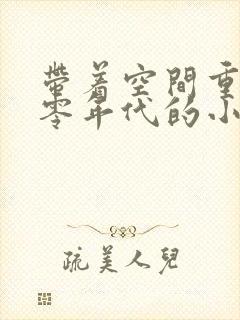 帶着空間重
零年代的小
疏美人兒